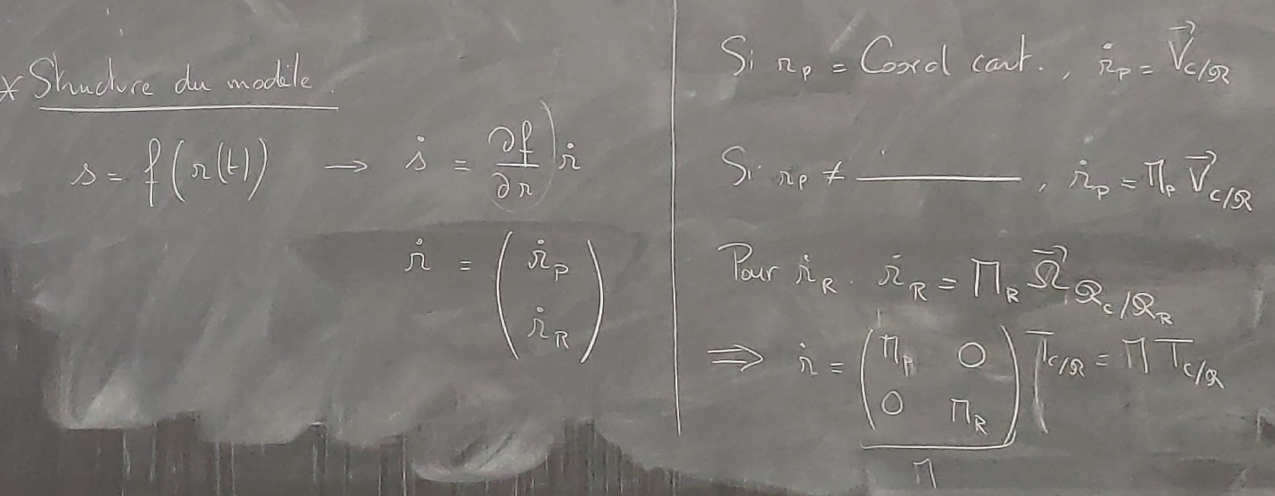 * Structure du modèle.
s = f(r(t)) → ṡ = ∂f/∂r) ṙ
ṙ = (ṙ_P
ṙ_R)
Si r_P = Coord cart., ṙ_P = V⃗_C/R
Si r_P ≠ ———, ṙ_P = Π_P V⃗_C/R
Pour ṙ_R. ṙ_R = Π_R Ω⃗_R_C/R_R
⇒ ṙ = (Π_P 0
0 Π_R) T_C/R = Π T_C/R
Π